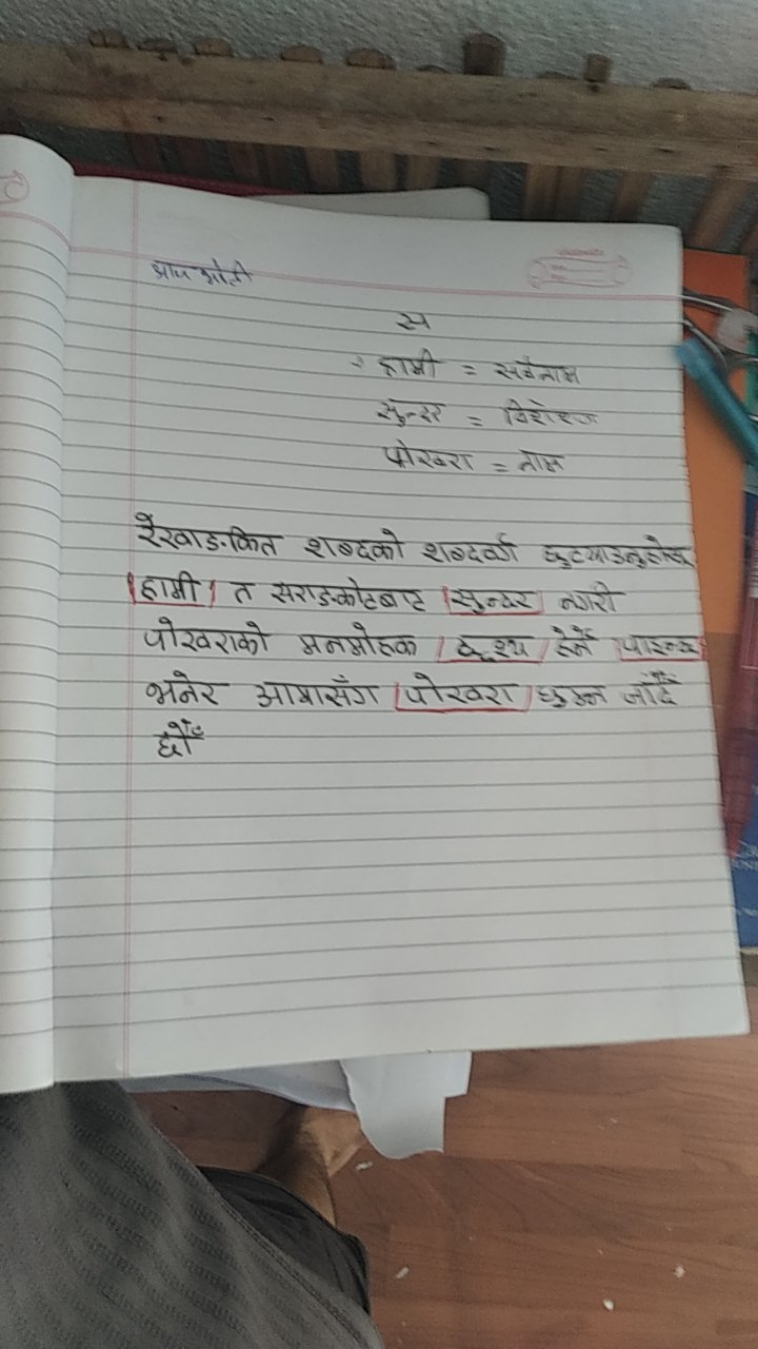 स
हामी = सर्वनाम
सुन्दर = विशेषण
पोखरा = नाम
रेखाङ्कित शब्दको शब्दवर्ग छुट्याउनुहोस्
हामी त सराङकोटबाट सुन्दर नगरी
पोखराको मनमोहक दृश्य हेर्न पाइन्छ
भनेर आमासँग पोखरा घुम्न जाँदै
छौँ